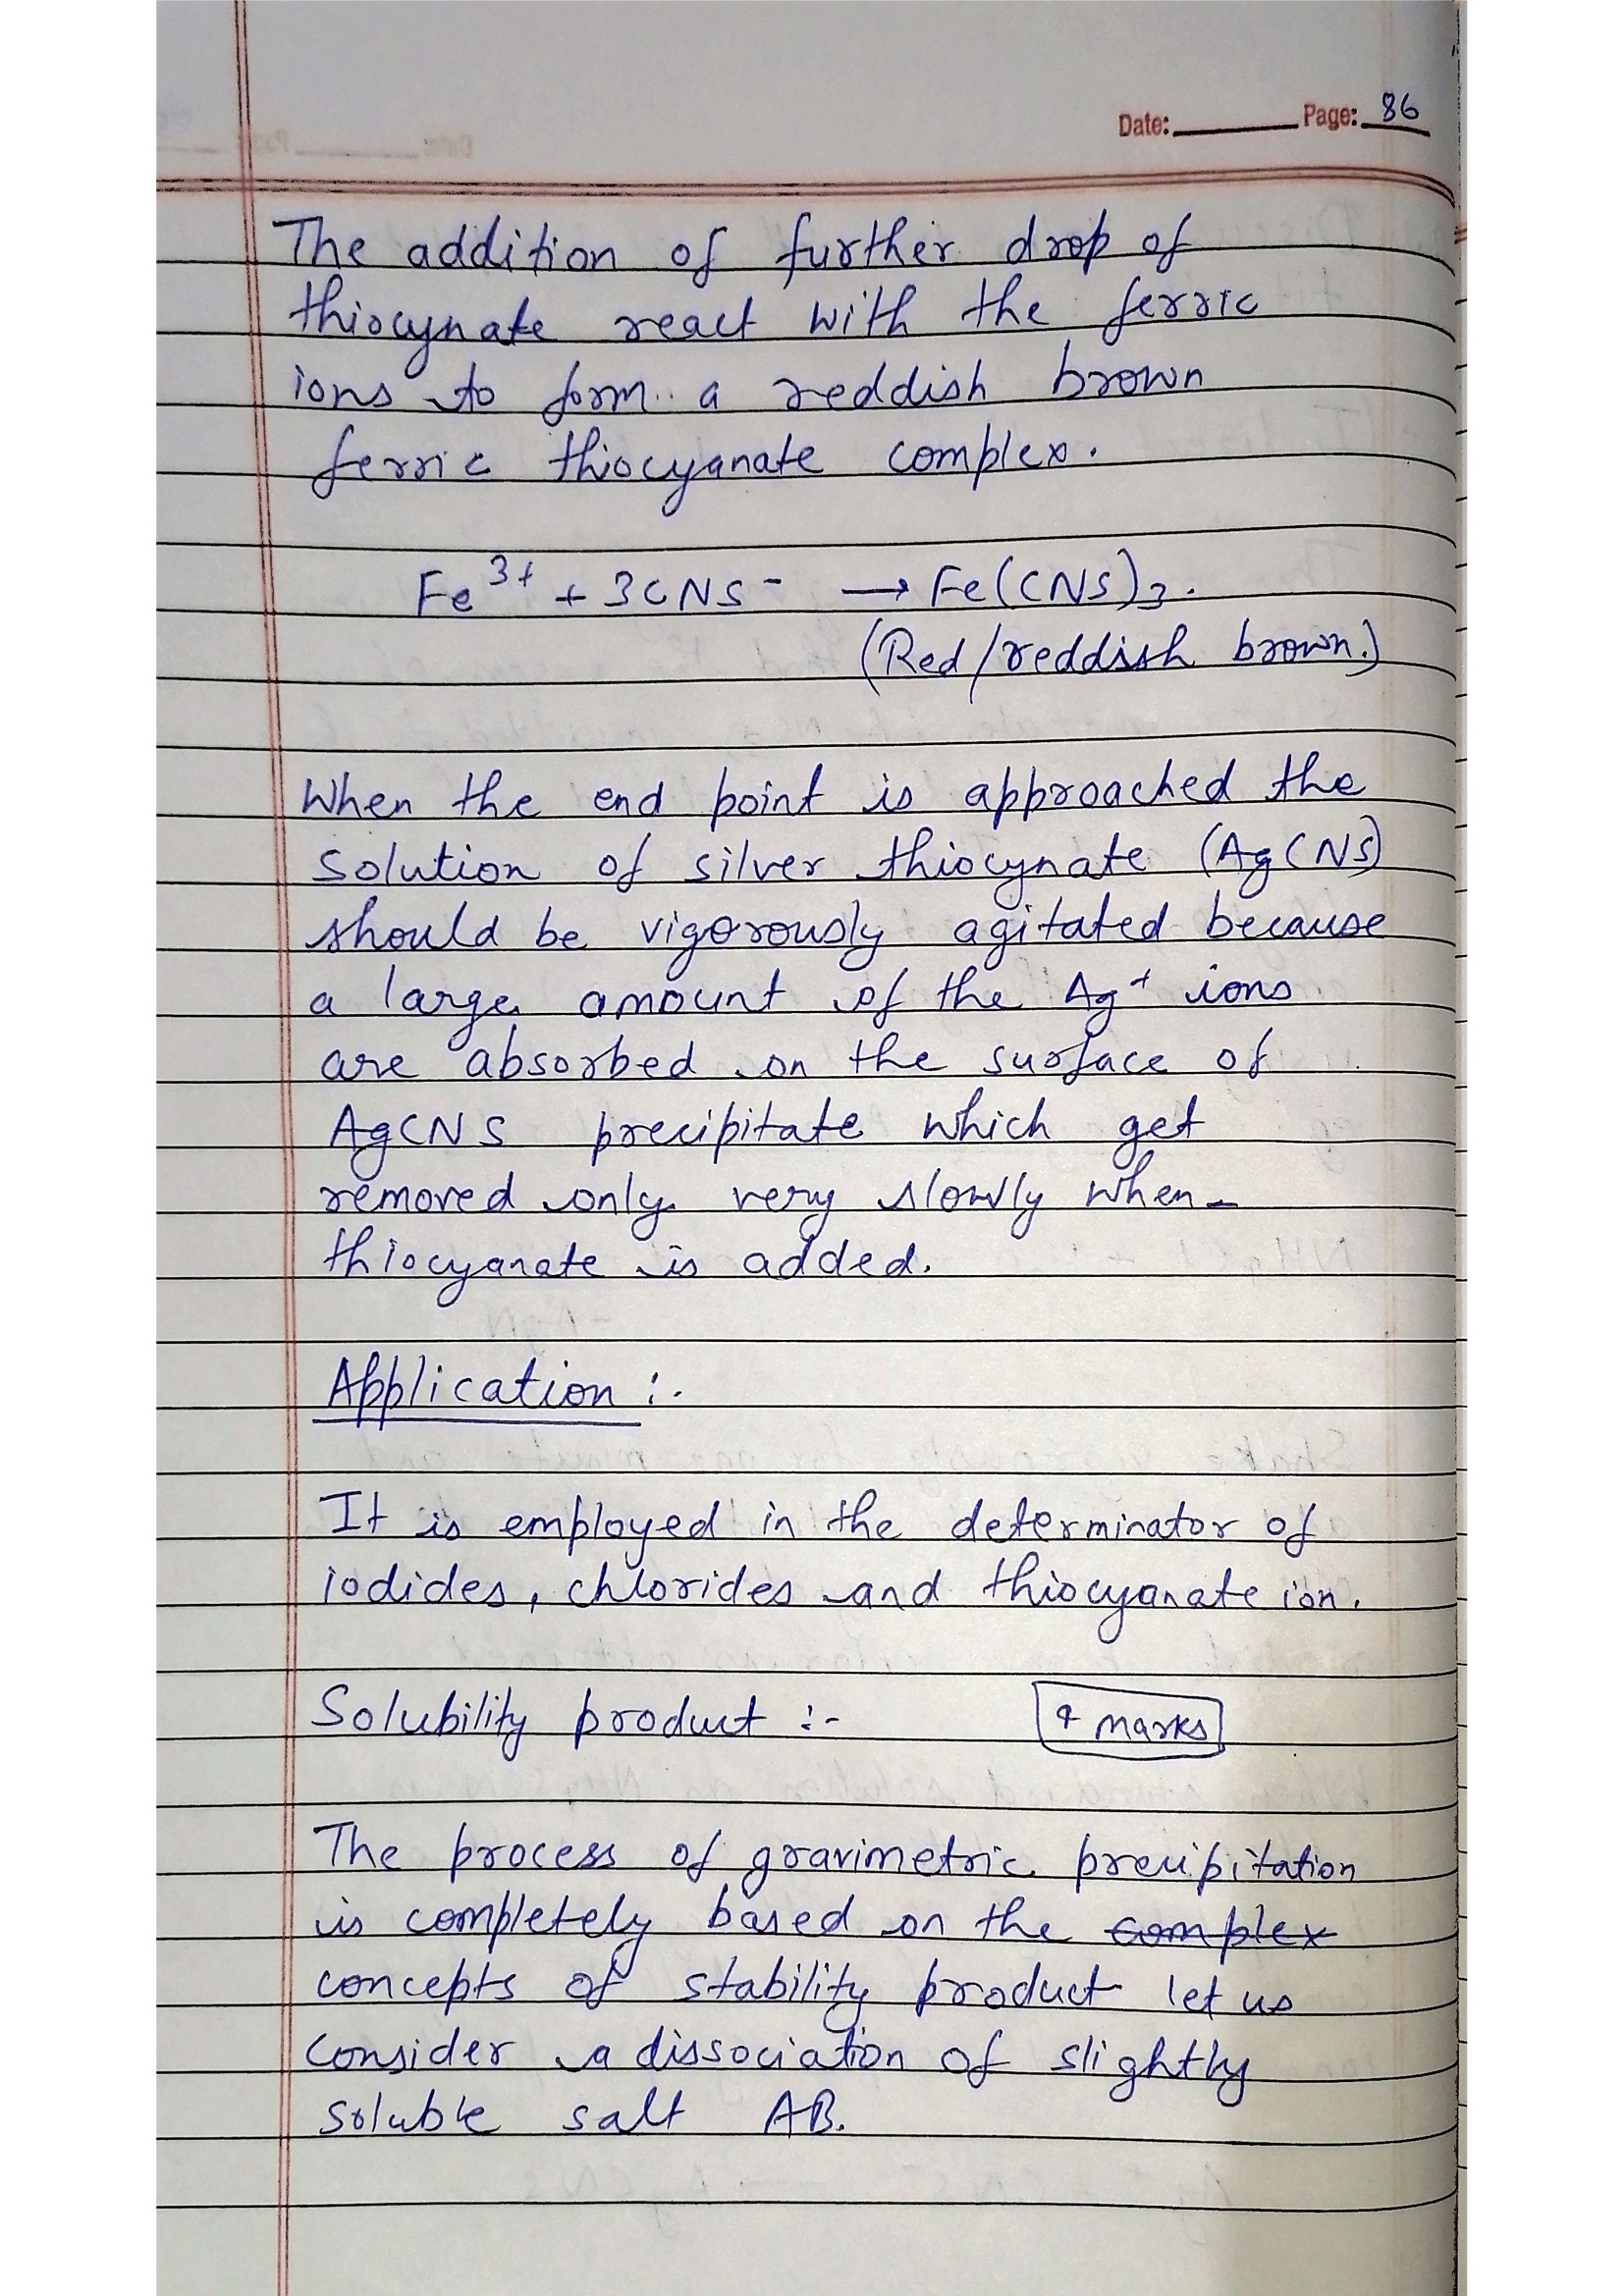 Date: Page: 86
The addition of further drop of
thiocynate react with the ferric
ions to form a reddish brown
ferric thiocyanate complex.
Fe³⁺ + 3CNS⁻ → Fe(CNS)₃.
(Red/reddish brown.)
When the end point is approached the
solution of silver thiocynate (AgCNS)
should be vigorously agitated because
a large amount of the Ag⁺ ions
are absorbed on the surface of
AgCNS precipitate which get
removed only very slowly when
thiocyanate is added.
Application :-
It is employed in the determinator of
iodides, chlorides and thiocyanate ion.
Solubility product :- marks
The process of gravimetric precipitation
is completely based on the complex
concepts of stability product let us
consider a dissociation of slightly
soluble salt AB.